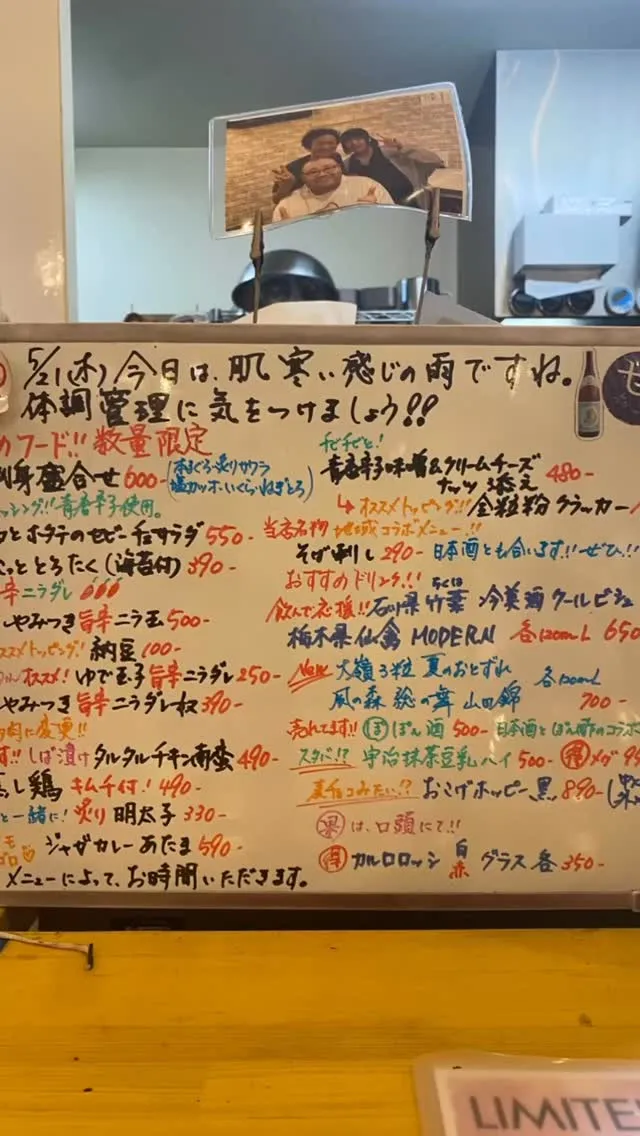 5/21(木)今日は、肌寒い感じの雨ですね。
体調管理に気をつけましょう!!
めフード!! 数量限定
刺身盛合せ 600- (本まぐろ・炙りサワラ
塩カツオ・いくら・ねぎとろ)
青唐辛子使用。
とホタテのセビーチェサラダ 550-
っととろたく(海苔付) 390-
辛ニラダレ
しやみつき旨辛ニラ玉 500-
ススメトッピング! 納豆 100-
オススメ! ゆで玉子旨辛ニラダレ 250-
しやみつき旨辛ニラダレ奴 390-
肉に変更!!
す!! しば漬けタルタルチキン南蛮 490-
蒸し鶏 キムチ付! 490-
と一緒に! 炙り明太子 330-
ジャガカレーあたま 590-
メニューによって、お時間いただきます。
チビチビと!
青唐辛子味噌&クリームチーズ
ナッツ添え 480-
↳オススメトッピング!! 全粒粉クラッカー
当店名物 地域コラボメニュー!!
そば刺し 290- 日本酒とも合います!! ぜひ!!
おすすめドリンク!!
飲んで応援!! 石川県 竹葉 冷美酒 クールビジュ
ちくは
栃木県 仙禽 MODERN 各120mL 650
New 大嶺3粒 夏のおとずれ 各120mL
風の森 総の舞 山田錦 700-
売れてます!! ぽ ぽん酒 500- 日本酒とぽん酢のコラボ
スタバ!? 宇治抹茶豆乳ハイ 500- 得メガ
おこげホッピー黒 890-
果は、口頭にて!!
得 カルロロッシ 白 赤 グラス各 350-
LIMITE